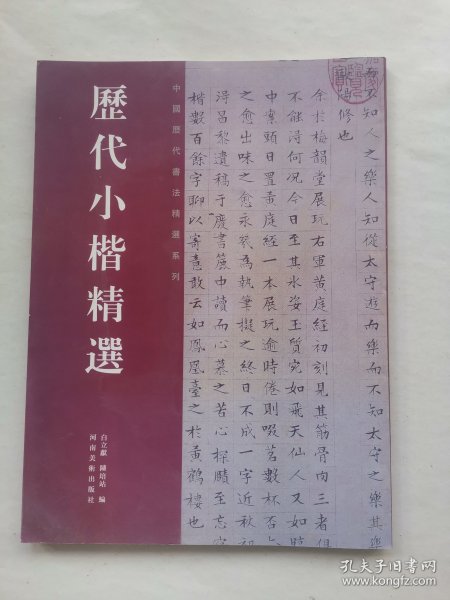 歷代小楷精選
中國歷代書法精選系列
白立獻 陳培站 編
河南美術出版社
知人之樂人知從太守遊而樂而不知太守之樂其樂
修也
余於梅韻堂展玩右軍黃庭經初刻見其筋骨肉三者俱
不能得何況今日至其水姿玉質宛如飛天仙人又如
中案頭日置黃庭經一本展玩逾時倦則啜茗數杯否
之愈出味之愈永然為執筆擬之終日不成一字近秋初
得昌黎遺稿于慶書簏中讀而心慕之苦心探賾至忘
楷數百餘字聊以寄意敢云如鳳凰臺之於黃鶴樓也
孔夫子旧书网
www.kongfz.com